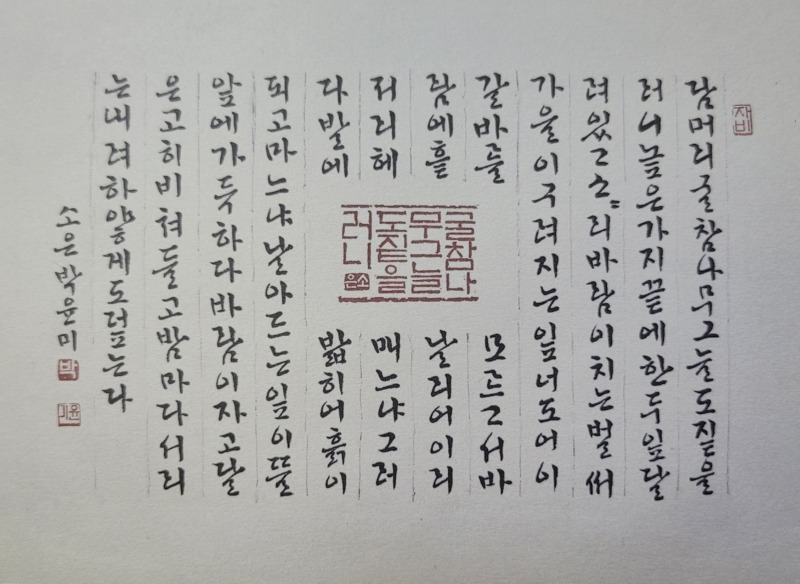 자비
담머리굴참나무그늘도짙을
러니높은가지끝에한두잎달
려있고소〃리바람이치는벌써
가을이구려지는잎너도어이
갈바를모르고서바
람에흩날리어이리
저리헤매느냐그러
다발에밟히어흙이
굴참나
무그늘
도짙을
러니
소은
되고마느냐날아드는잎이뜰
앞에가득하다바람이자고달
은고히비쳐들고밤마다서리
는내려하얗게도덮는다
소은박윤미
박
윤미